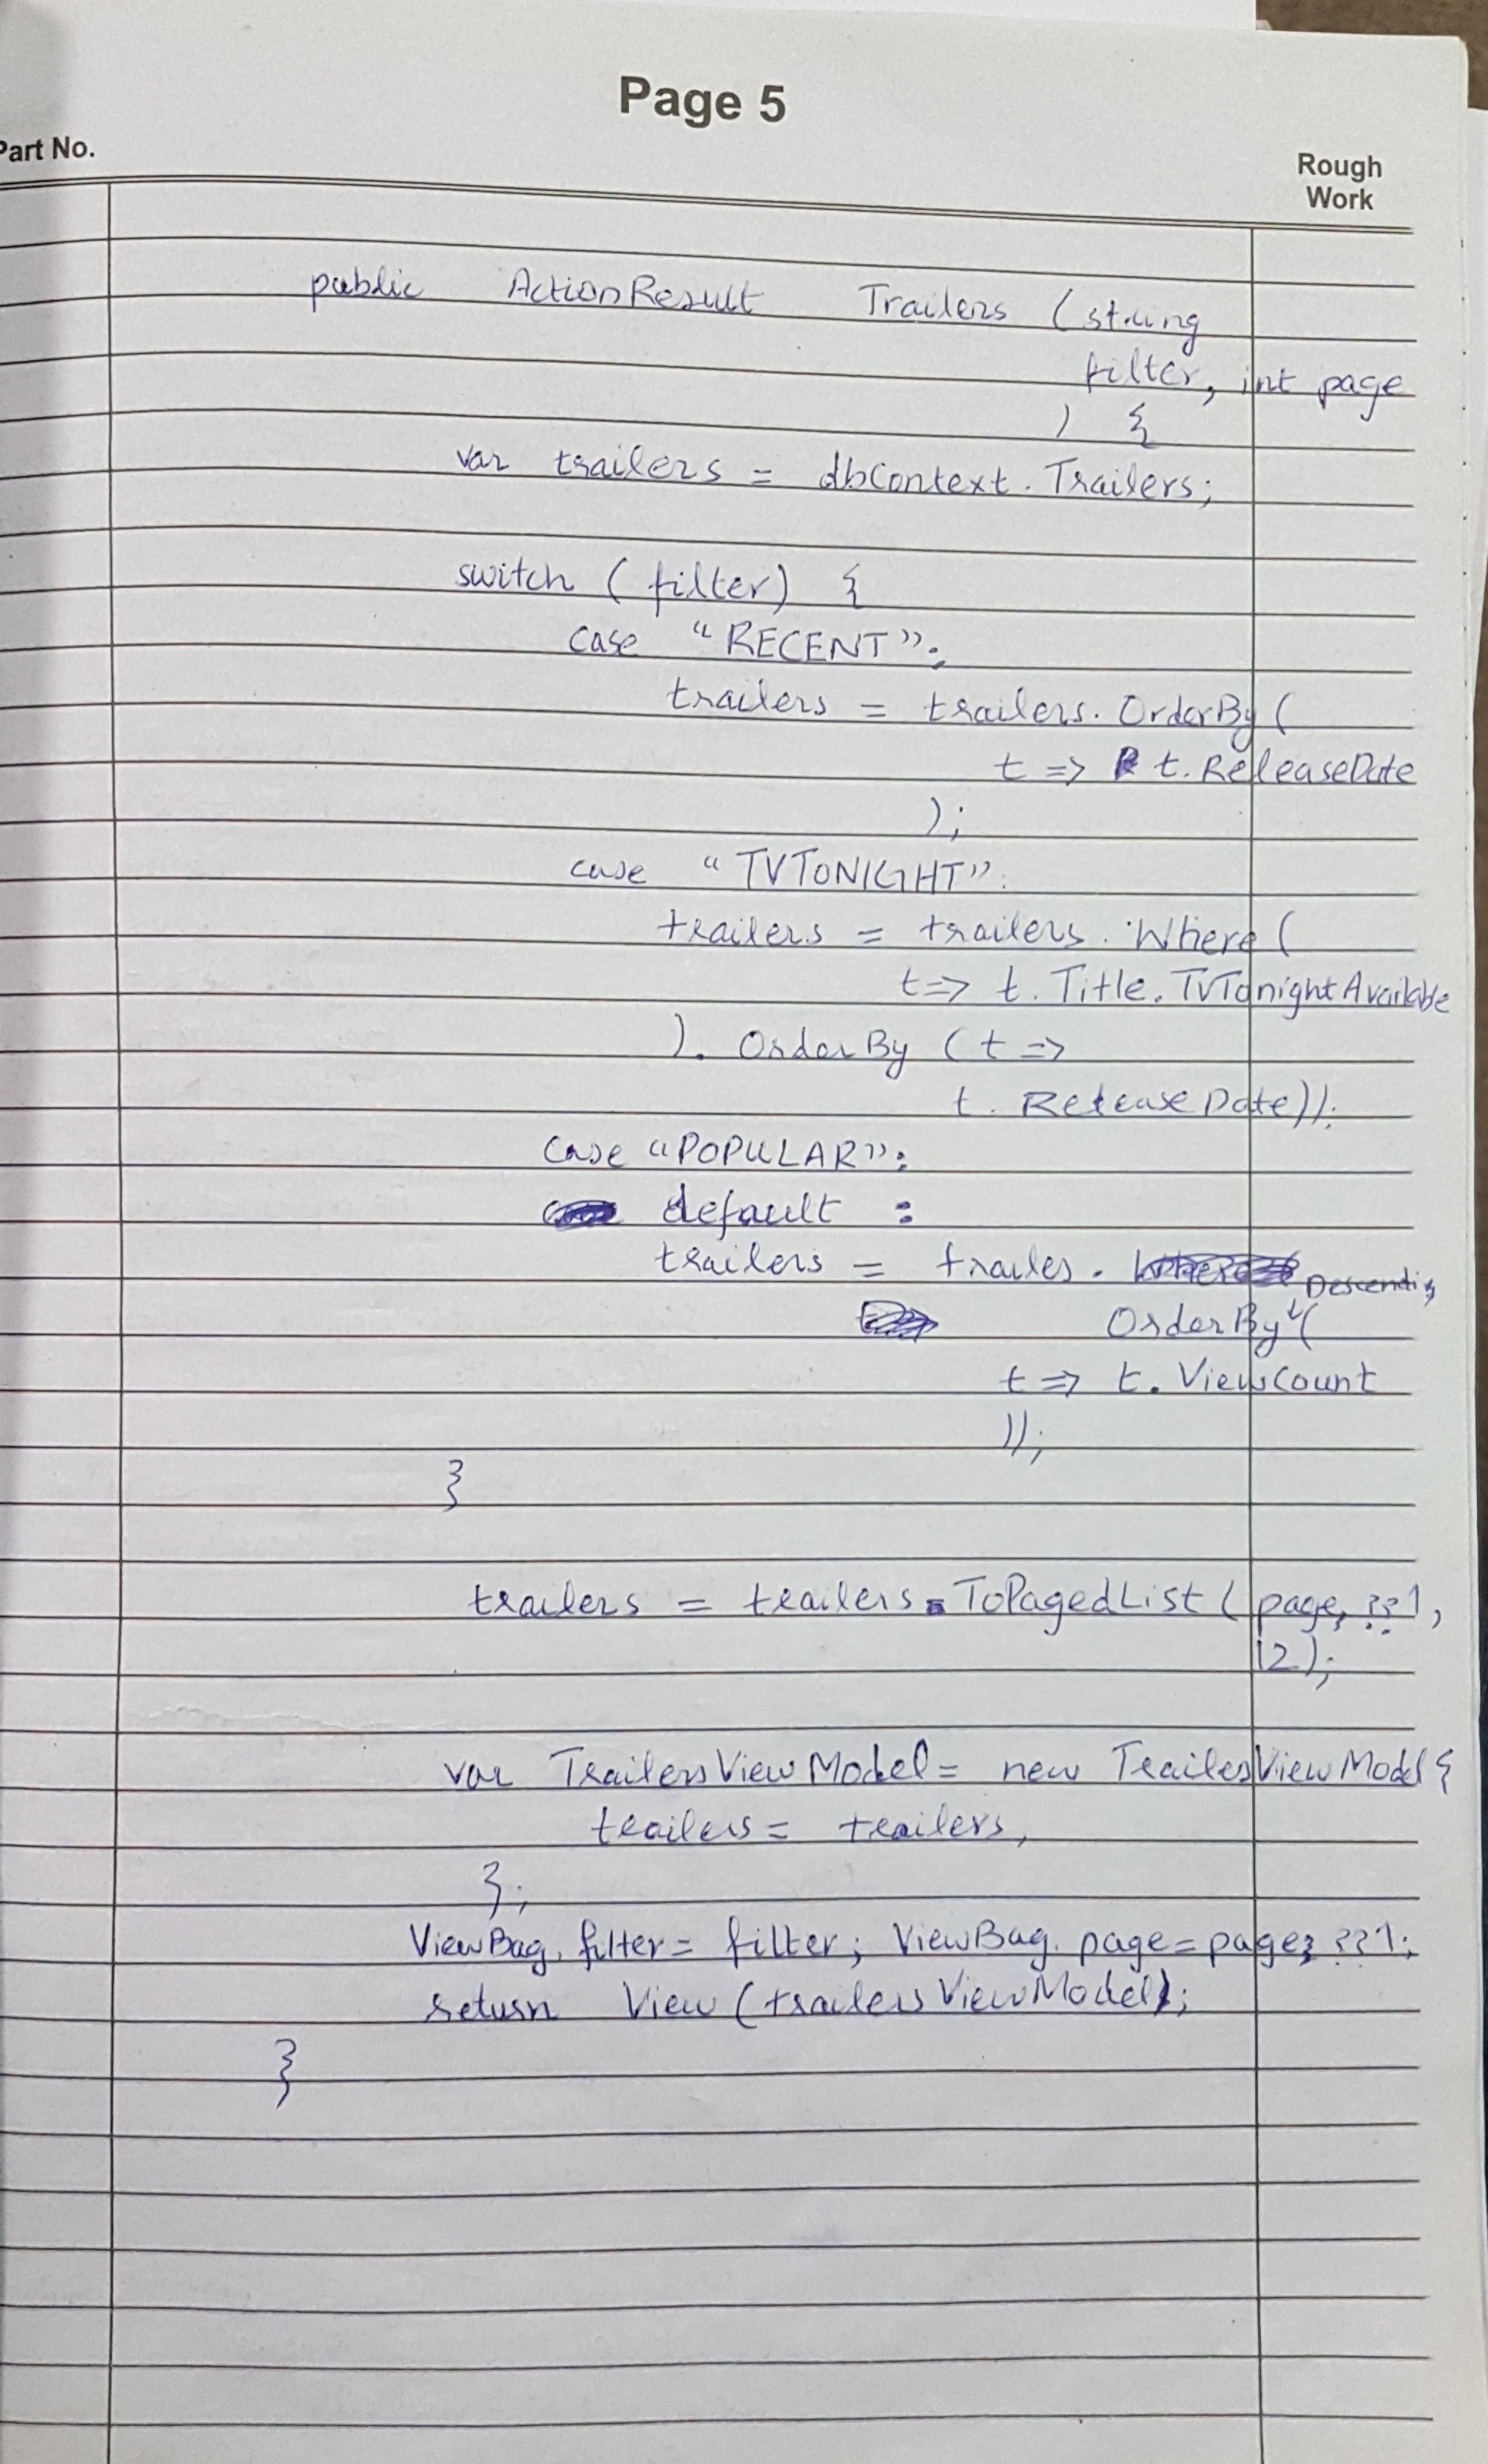 Page 5
Part No.
Rough
Work
public ActionResult Trailers (string
filter, int page
) {
var trailers = dbContext.Trailers;
switch (filter) {
case "RECENT":
trailers = trailers.OrderBy(
t => t.ReleaseDate
);
case "TVTONIGHT":
trailers = trailers.Where(
t => t.Title.TvTonightAvailable
).OrderBy (t =>
t.ReleaseDate));
case "POPULAR":
default :
trailers = trailes.
Descending
OrderBy(
t => t.ViewCount
));
}
trailers = trailers.ToPagedList(page, ??1,
12);
var TrailersViewModel = new TrailesViewModel{
trailers = trailers,
};
ViewBag.filter = filter; ViewBag.page = page; ??1;
return View (trailersViewModel);
}